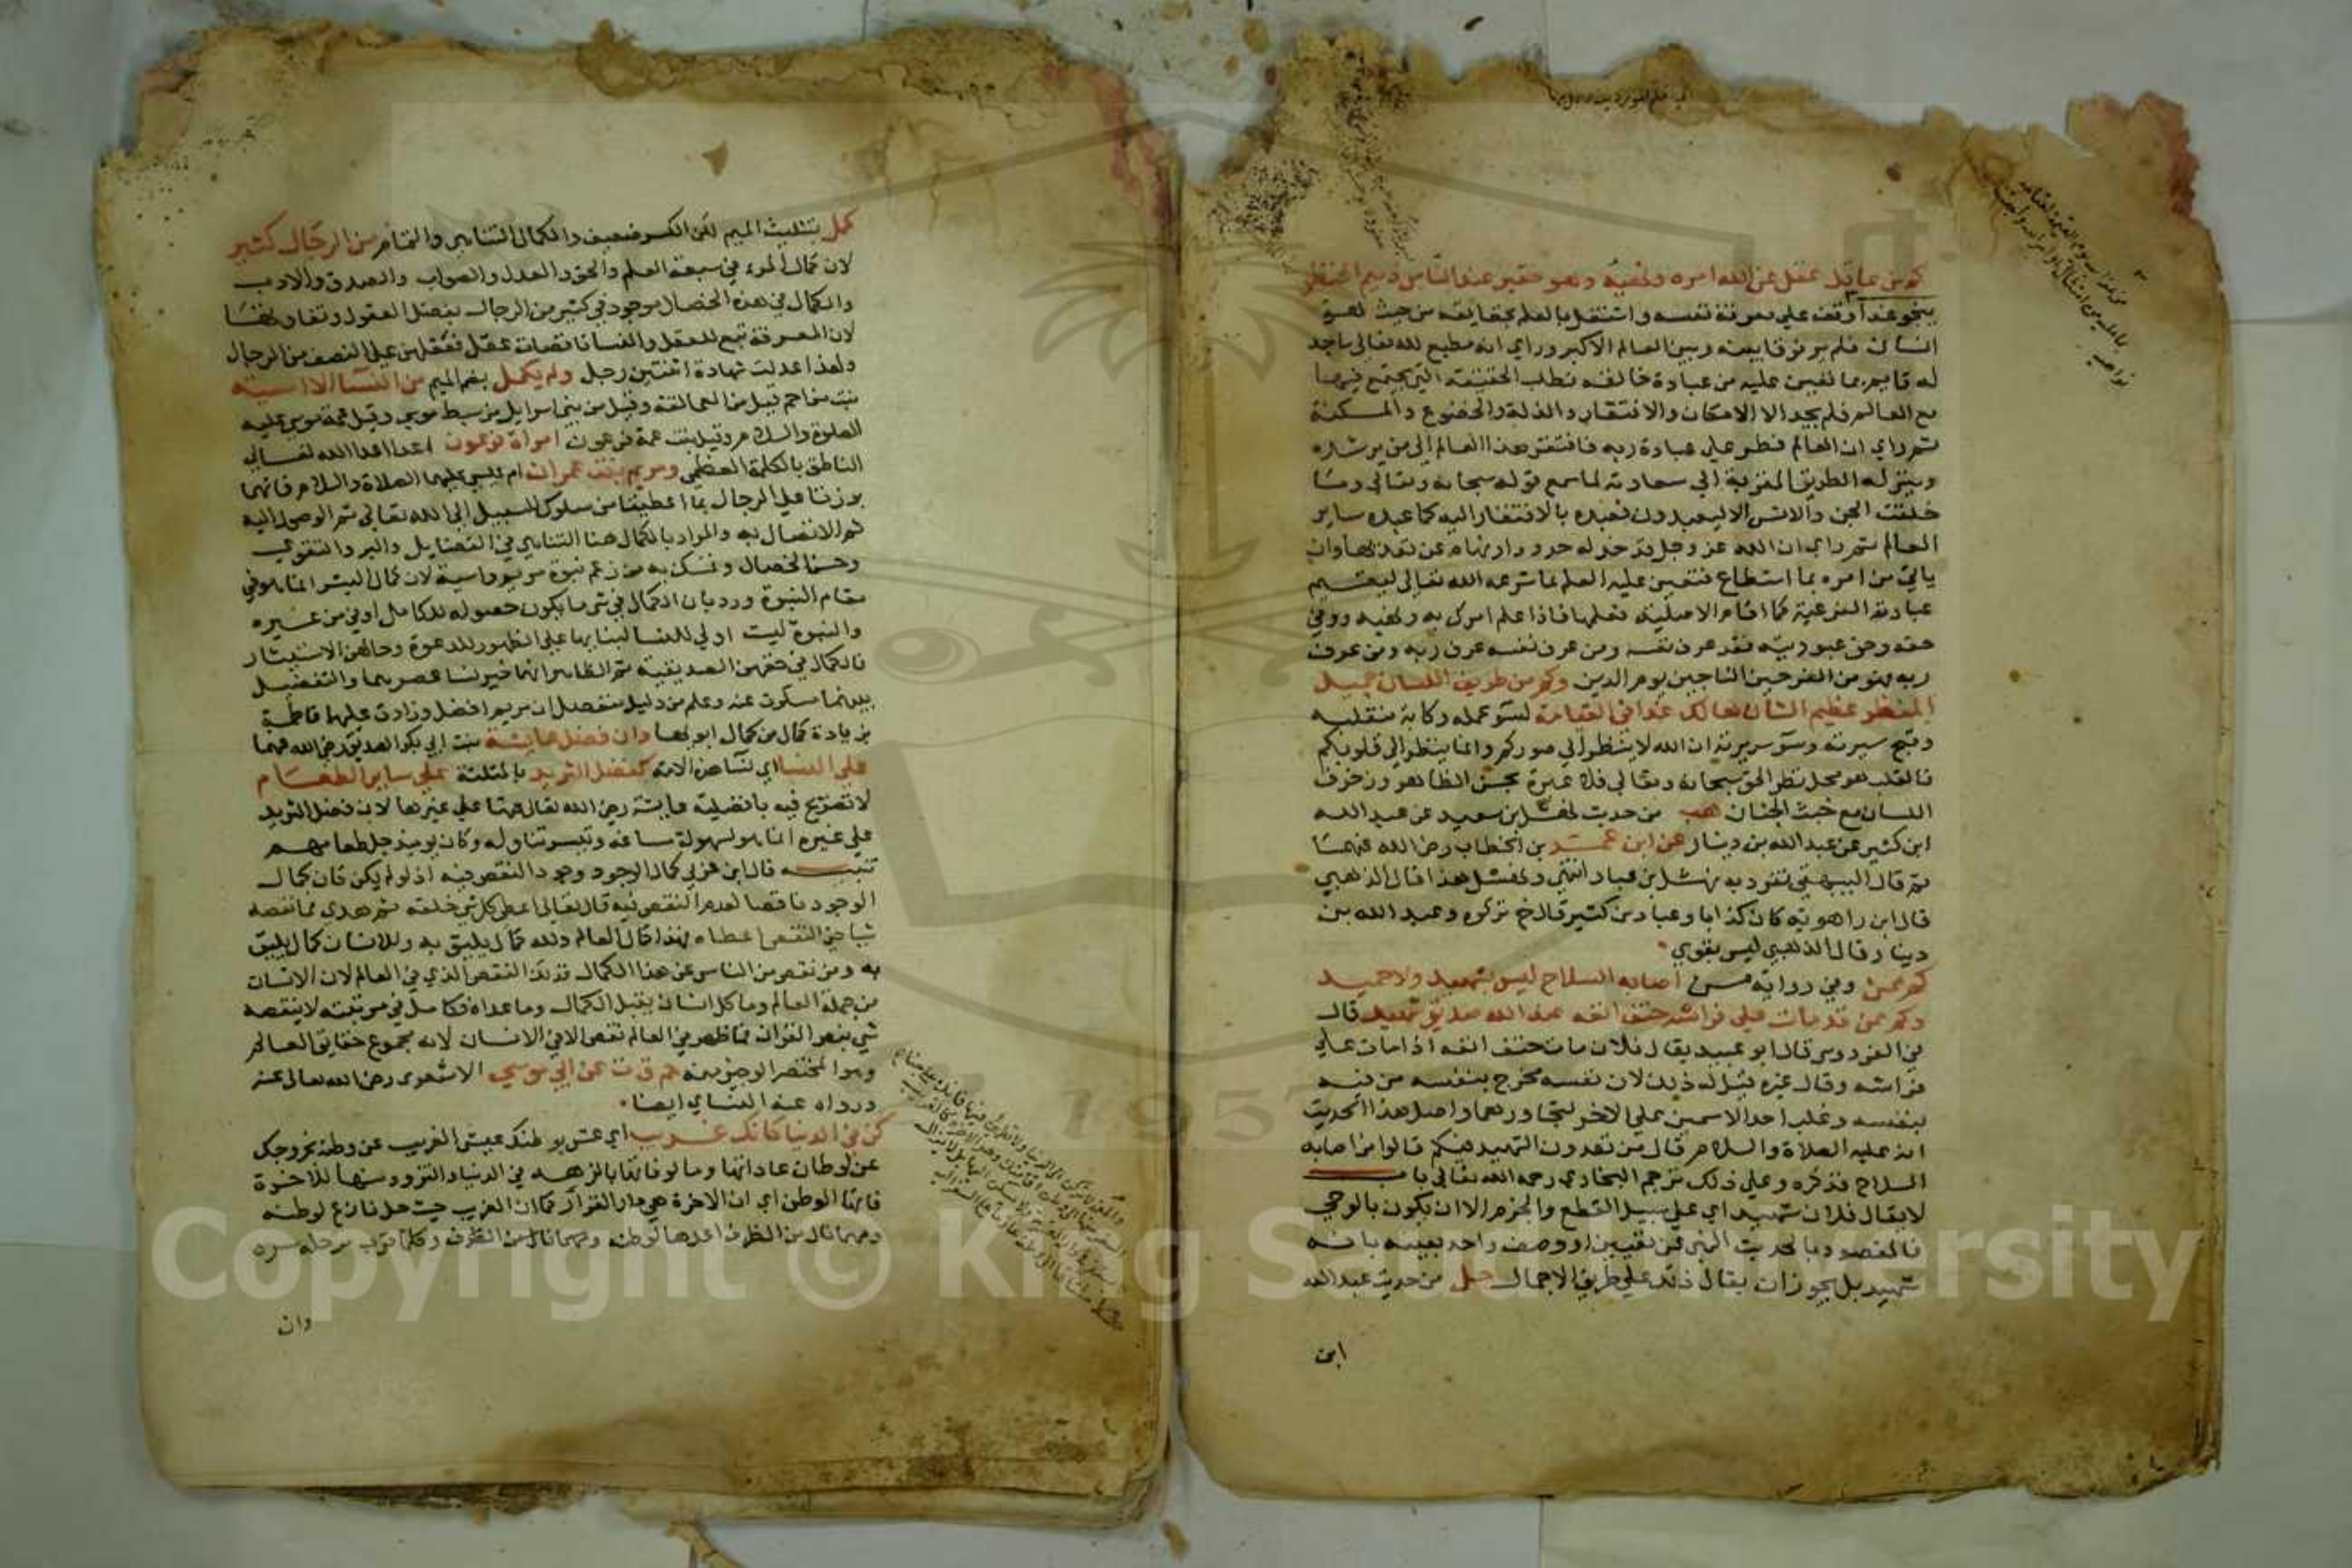 كم من عاقل عقل عن الله امره ونهيه وهو حقير عند الناس دميم المنظر
ينجو غدا وقف علي معرفة نفسه واشتغل بالعلم بحقايقه من حيث هو
انسان فلم ير فرقا بينه وبين العالم الاكبر وراي انه مطيع لله تعالى ساجد
له قايم بما تعين عليه من عبادة خالقه فطلب الحقيقة التي يجتمع فيها
مع العالم فلم يجد الا الامكان والافتقار والذلة والخضوع والمسكنة
ثم راي ان العالم فطر علي عبادة ربه فافتقر هذا العالم الى من يرشده
ويبين له الطريق المقربة الي سعادته لما سمع قوله سبحانه وتعالى وما
خلقت الجن والانس الا ليعبدون فعبده بالافتقار اليه كما عبده ساير
العالم ثم راي ان الله عز وجل قد حد له حدودا ونهاه عن تعديها وان
ياتي من امره بما استطاع فتعين عليه العلم بما شرعه الله تعالى ليقيم
عبادته الشرعية كما اقام الاصلية فعلمها فاذا علم امر ربه ونهيه ووفي
حقه وحق عبوديته فقد عرف نفسه ومن عرف نفسه عرف ربه ومن عرف
ربه فهو من الفرحين الناجين يوم الدين وكم من ظريف اللسان جميل
المنظر عظيم الشان هالك غدا في القيامة لسو عمله وكابة منقلبه
وقبح سيرته وسو سريرته ان الله لا ينظر الي صوركم وانما ينظر الى قلوبكم
فالقلب هو محل نظر الحق سبحانه وتعالى فلا عبرة بحسن الظاهر وزخرف
اللسان مع خبث الجنان هب من حديث نهشل بن سعيد عن عبد الله
ابن كثير عن عبد الله بن دينار عن ابن عمر بن الخطاب رضي الله عنهما
ثم قال البيهقي تفرد به نهشل بن عباد انتهي ونهشل هذا قال الذهبي
قال ابن راهويه كان كذابا وعباد بن كثير قال خ تركوه وعبد الله بن
دينار قال الذهبي ليس بقوي
كم ممن وفي رواية من اصابه السلاح ليس بشهيد ولا حميد
وكم ممن قد مات علي فراشه حتف انفه عند الله صديق شهيد قال
في الفردوس قال ابو عبيد يقال فلان مات حتف انفه اذا مات علي
فراشه وقال غيره قيل له ذلك لان نفسه تخرج بنفسه من فيه
بنفسه وغلب احد الاسمين علي الاخر لتجاورهما واصل هذا الحديث
انه عليه الصلاة والسلام قال من تعدون الشهيد فيكم قالوا من اصابه
السلاح فذكره وعلي ذلك ترجم البخاري رحمه الله تعالى باب
لا يقال فلان شهيد اي علي سبيل القطع والجزم الا ان يكون بالوحي
فالمقصود بالحديث النهي عن تعيين او وصف واحد بعينه بانه
شهيد بل يجوز ان يقال ذلك علي طريق الاجمال حل من حديث عبد الله
ابن
كمل بتثليث الميم لكن الكسر ضعيف والكمال التناهي والتمام من الرجال كثير
لان كمال المرء في سبعة العلم والحق والعدل والصواب والصدق والادب
والكمال في هذه الخصال موجود في كثير من الرجال بفضل العقول وتفاوتها
لان المعرفة تبع للعقل والنسا ناقصات عقل فعقلهن علي النصف من الرجال
ولهذا عدلت شهادة اثنتين رجل ولم يكمل بضم الميم من النسا الا اسية
بنت مزاحم قيل من العمالقة وقيل من بني اسرايل من سبط موسي وقيل عمة موسي عليه
الصلوة والسلام وقيل بنت عمة فرعون امراة فرعون اعدا اعدا الله تعالى
الناطق بالكلمة العظمى ومريم بنت عمران ام عيسي عليهما الصلاة والسلام فانهما
برزتا علي الرجال بما اعطيتا من سلوك السبيل الي الله تعالى ثم الوصول اليه
ثم الاتصال به والمراد بالكمال هنا التناهي في الفضايل والبر والتقوي
وحسن الخصال وتمسك به من زعم نبوة مريم واسية لان كمال البشر انما هو في
مقام النبوة ورد بان الكمال في شي ما يكون حصوله للكامل اولي من غيره
والنبوة ليست اولي للنسا لبنائها علي الظهور للدعوة وحالهن الاستتار
فالكمال في حقهن الصديقية ثم الظاهر انهما خير نسا عصرهما والتفضيل
بينهما مسكوت عنه وعلم من دليل منفصل ان مريم افضل وزادت عليها فاطمة
بزيادة كمال من كمال ابوها وان فضل عايشة بنت ابي بكر الصديق رضي الله عنهما
علي النسا اي نسا هذه الامة كفضل الثريد بالمثلثة علي ساير الطعام
لا تصريح فيه بافضلية عايشة رضي الله تعالى عنها علي غيرها لان فضل الثريد
علي غيره انما هو لسهولة مساغه وتيسر تناوله وكان يوميذ جل طعامهم
تنبيه قال ابن عربي كمال الوجود وجود النقص فيه اذ لو لم يكن كان كمال
الوجود ناقصا لعدم النقص فيه قال تعالى اعطى كل شي خلقه ثم هدى مما نقصه
شيا حتى النقص اعطاه فهذا كمال العالم ولله كمال يليق به وللانسان كمال يليق
به ومن نقص من الناس عن هذا الكمال فذلك النقص الذي في العالم لان الانسان
من جملة العالم وما كل انسان يقبل الكمال وما عداه فكامل في مرتبته لا ينقصه
شي بنص القران فما ظهر في العالم نقص الا في الانسان لانه مجموع حقايق العالم
وهو المختصر الوجيز حم ق ت عن ابي موسي الاشعري رضي الله تعالى عنه
ورواه عنه النساي ايضا
كن في الدنيا كانك غريب اي عش بوطنك عيش الغريب عن وطنه بخروجك
عن اوطان عاداتها ومالوفاتها بالزهد في الدنيا والتزود منها للاخرة
فانها الوطن اي ان الاخرة هي دار القرار كما ان الغريب حيث حل نازع لوطنه
ومهما نال من الظرف اعدها لوطنه وكلما قرب مرحلة سره
وان
Copyright © King Saud University
1957